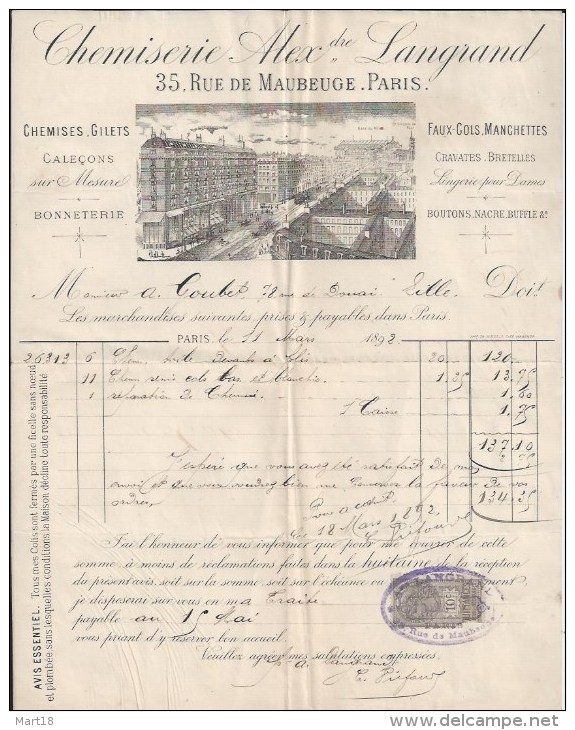 Chemiserie Alex dre Langrand
35, RUE DE MAUBEUGE. PARIS.
CHEMISES, GILETS
CALEÇONS
sur Mesure
BONNETERIE
FAUX-COLS, MANCHETTES
CRAVATES, BRETELLES
Lingerie pour Dames
BOUTONS, NACRE, BUFFLE &c
Monsieur A. Goubet 78 rue de Douai Lille. Doit
Les marchandises suivantes, prises & payables dans Paris.
PARIS, le 11 Mars 1892
26313 6 Chem. toile devants à plis 20 120
11 Chem remis cols bas et blanchis 1.25 13.75
1 réparation de Chemise 1.60
1 Caisse 1.75
137.10
134.35
J'espère que vous avez été satisfait de mon
envoi et que vous voudrez bien me la faveur de vos
ordres
Pour acquit
18 Mars 1892
J'ai l'honneur de vous informer que pour me couvrir de cette
somme à moins de réclamations faites dans la huitaine de la réception
du présent avis, soit sur la somme soit sur l'échéance ou
je disposerai sur vous en ma Traite
payable au 15 Mai
vous priant d'y réserver bon accueil.
Veuillez agréer mes salutations empressées.
LANGRAND
10c
Rue de Maubeuge
AVIS ESSENTIEL. Tous mes Colis sont fermés par une ficelle sans nœud
et plombée, sans lesquelles conditions la Maison décline toute responsabilité
Mart18
www.delcampe.net